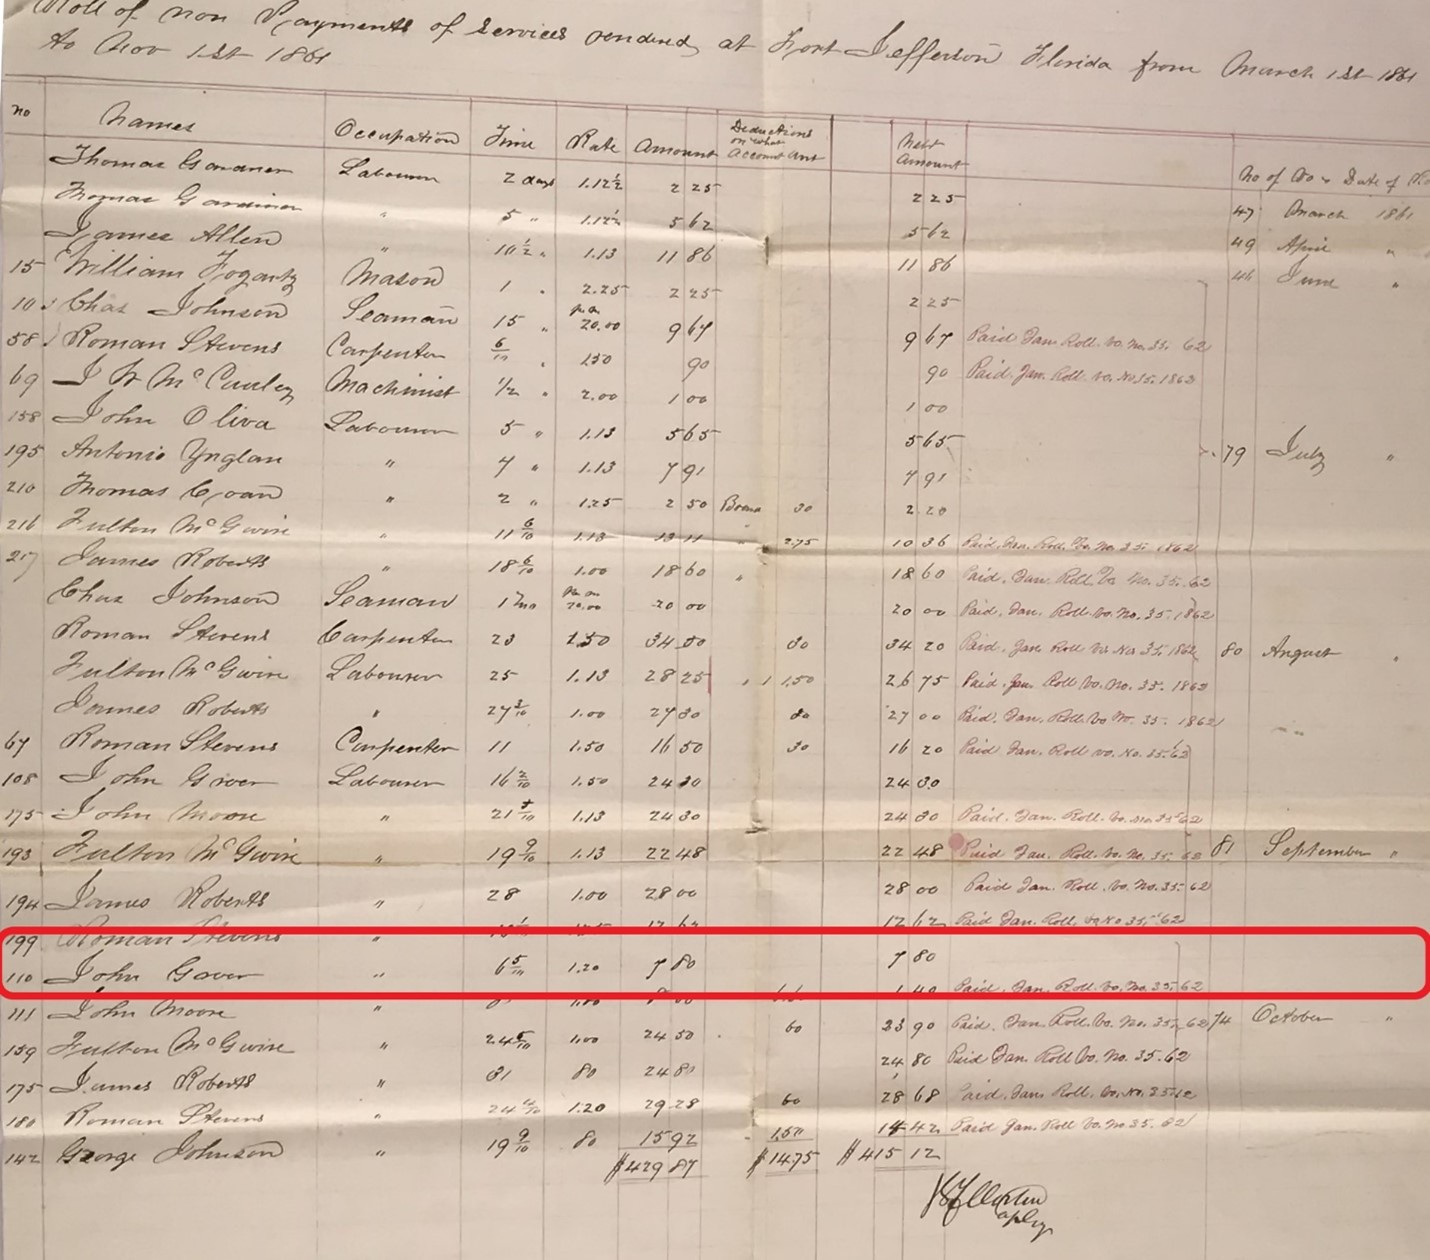 Roll of non Payments of Services rendered at Fort Jefferson Florida from March 1st 1861
to Nov 1st 1861
no Names Occupation Time Rate Amount Deductions on what account Amt Nett Amount No of Vo Date of
Thomas Gardner Labourer 2 days 1.12½ 2 25 2 25 47 March 1861
Thomas Gardiner " 5 " 1.12½ 5 62 5 62 49 April "
James Allen " 10½ " 1.13 11 86 11 86 46 June "
15 William Fogarty Mason 1 " 2.25 2 25 2 25
10 Chas Johnson Seaman 15 " 20.00 9 67 9 67 Paid Jan. Roll. Vo. No. 35. 62
58 Roman Stevens Carpenter 6/10 " 1.50 90 90 Paid Jan. Roll. Vo. No 35. 1862
69 J W McCauley Machinist 1/2 " 2.00 1 00 1 00
158 John Oliva Labourer 5 " 1.13 5 65 5 65 79 July "
195 Antonio Ynglan " 7 " 1.13 7 91 7 91
210 Thomas " 2 " 1.25 2 50 30 2 20
216 Fulton McGwire " 11 6/10 1.13 13 11 " 2.75 10 36 Paid. Jan. Roll. Vo. No. 35. 1862
217 James Roberts " 18 6/10 1.00 18 60 " 18 60 Paid. Jan. Roll. Vo. No. 35. 62
Chas Johnson Seaman 1 mo 20.00 20 00 20 00 Paid. Jan. Roll. Vo. No. 35. 1862
Roman Stevens Carpenter 23 1.50 34 50 30 34 20 Paid. Jan Roll Vo No 35. 1862 80 August "
Fulton McGwire Labourer 25 1.13 28 25 " 1.50 26 75 Paid. Jan. Roll Vo. No. 35. 1862
James Roberts " 27 3/10 1.00 27 30 30 27 00 Paid. Jan. Roll Vo No. 35. 1862
67 Roman Stevens Carpenter 11 1.50 16 50 30 16 20 Paid Jan. Roll Vo. No. 35. 62
108 John Labourer 16 2/10 1.50 24 30 24 30
175 John Moore " 21 5/10 1.13 24 30 24 30 Paid. Jan. Roll. Vo. No. 35 62
193 Fulton McGwire " 19 9/10 1.13 22 48 22 48 Paid Jan. Roll. Vo. No. 35. 62 81 September "
194 James Roberts " 28 1.00 28 00 28 00 Paid Jan. Roll. Vo. No. 35. 62
199 Roman Stevens " 12 62 12 62 Paid Jan. Roll. Vo No 35. 62
110 John Gover " 6 5/10 1.20 7 80 7 80
111 John Moore " 1 40 Paid. Jan. Roll. Vo. No. 35. 62
159 Fulton McGwire " 24 5/10 1.00 24 50 60 23 90 Paid. Jan Roll. Vo. No. 35. 62 74 October "
175 James Roberts " 31 80 24 80 24 80 Paid Jan. Roll Vo. No. 35. 62
180 Roman Stevens " 24 4/10 1.20 29.28 60 28 68 Paid. Jan. Roll. Vo. No. 35 62
142 George Johnson " 19 9/10 80 15 92 1.50 14 42 Paid Jan. Roll Vo. No. 35. 62
$429 87 $14.75 $415 12